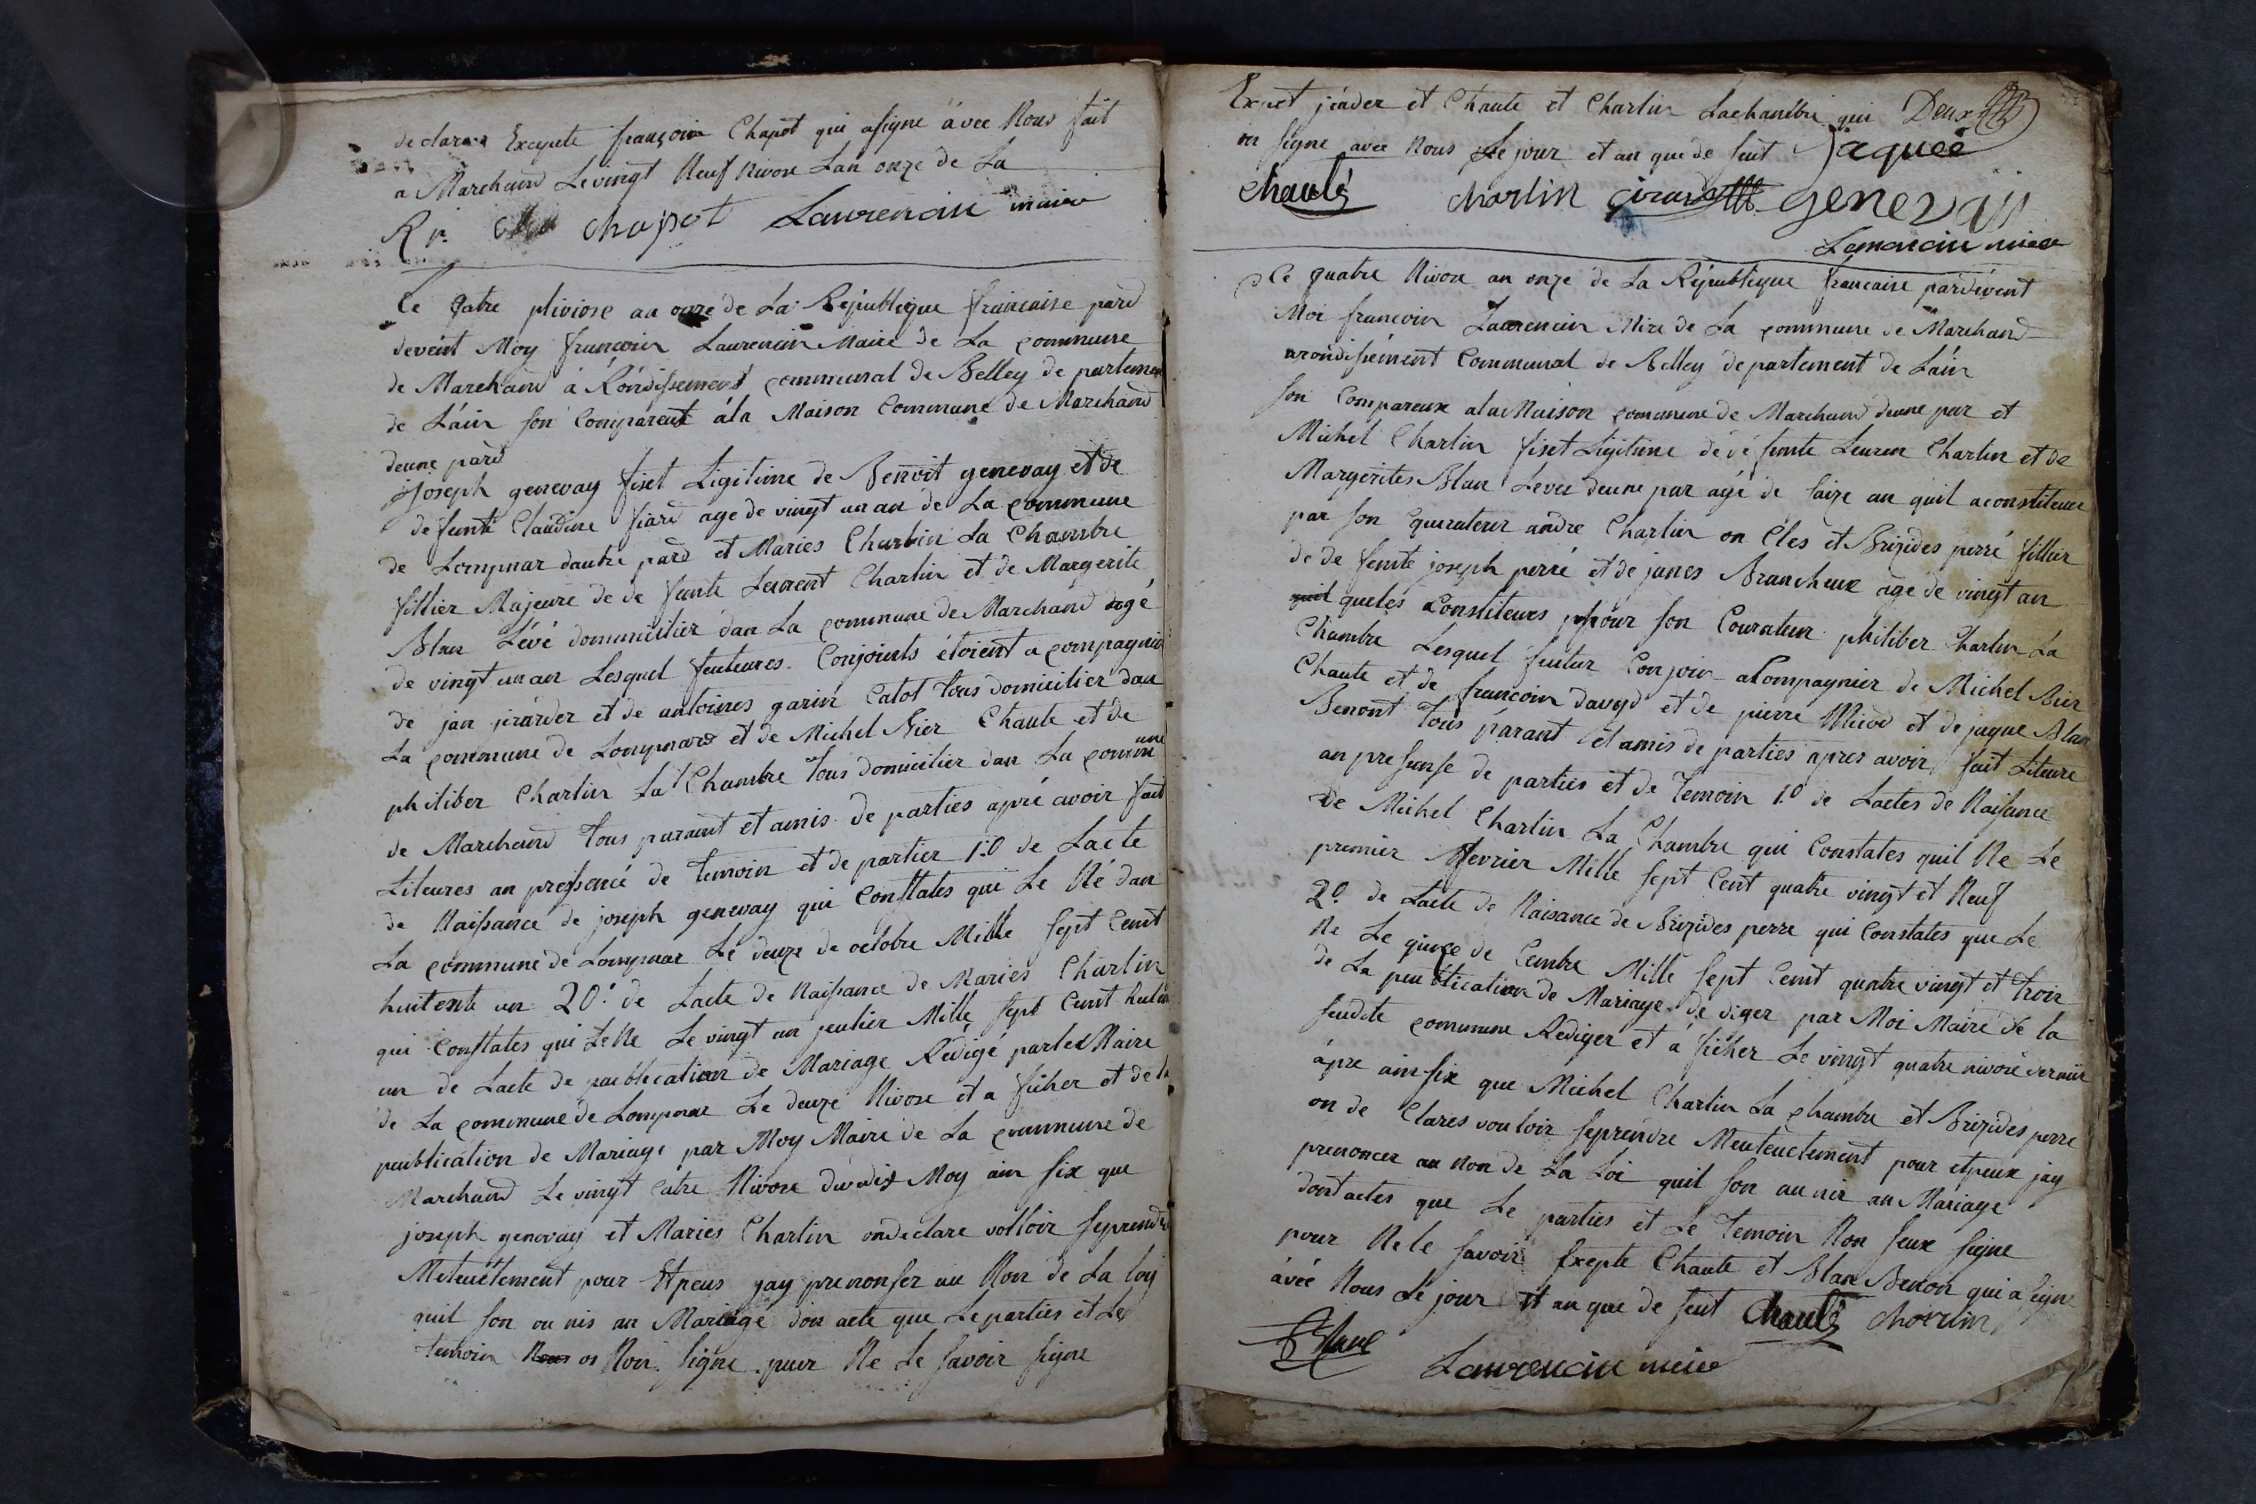 declare Excepete françoin Chapot qui asigne âvec Nous fait
a Marchand Le vingt Neuf Nivose Lan onze de La
Rp. Chapot Laurencin maire
Ce Qatre pliviose an onze de La République française pard
devént Moy françoin Laurencin Maire de La commune
de Marchand â Rôndissement communal de Belley de partement
de Láin son Comparent âla Maison Commune de Marchand
deune pard
Joseph genevay fiset Ligitime de Benoit genevay et de
defunte Claudine fiard age de vingt un an de La commune
de Lompnar dautre pard et Maries Charlin La Chambre
fillier Majeure de de funte Leurent Charlin et de Margerite
Blan Lévé domunicilier dan La commune de Marchand dagé
de vingt un an Lesquel feuteures Conjoints étoient a compagnier
de jan jirarder et de antoines garin Catot tous domicilier dan
La commune de Lompnard et de Michel Bier Chaute et de
philiber Charlin La Chambre tous domicilier dan La commune
de Marchand tous parant et amis de parties apré avoir fait
Liteures an pressencé de temoin et de partier 1.o de Lacte
de Naissance de joseph genevay qui Constates qui Le Né dan
La commune de Lompnar Le deuze de octobre Mille sept Cent
huitente un 20. de Lacte de Naissance de Maries Charlin
qui Constates qui Le Ne Le vingt un jeulier Mille sept Cent huitente
un de Lacte de peublication de Mariage Redigé par Le Maire
de La commune de Lompnar Le deuze Nivose et a ficher et de la
peublication de Mariage par Moy Maire de La commune de
Marchand Le vingt Catre Nivose dudix Moy ain six que
joseph genevay et Maries Charlin ondeclare volloir seprendre
Meteuetement pour Etpeus gay prenonser au Non de La loy
quil son ou nis an Mariage don acte que Le parties et Le
temoin Nous on Non signe pour Ne Le savoir signe
Exect jirader et Chaute et Charlin Lachambre qui Deux
on signe avec Nous Le jour et an que de seut Jaquee
chaulé charlin girard genevay
Laurencin maire
Ce quatre Nivose an onze de La République francaise pardevent
Moi francoin Laurencin Mire de La commune de Marchand
arondissement Communal de Belley departement de Láin
son Compareux ala Maison commune de Marchand deune par et
Michel Charlin fiset Ligitime dé dé funte Leuren Charlin et de
Margerites Blan Levee deune par agé de saize an quil aconstiteuer
par son queurateur andre Charlin on Cles et Brizides perré fillier
de de feunte joseph perré et de janes Brancheux age de vingt an
quil queles Constiteurs pour son Courateur philiber Charlin La
Chambre Lesquel feutur Conjoin aCompagnier de Michel Bier
Chaute et de francoin davyd et de pierre Mievd et de juque Blan
Benont tous párant et amis de parties apres avoir fait Liteure
an presense de parties et de temoin 1.o de Lactes de Naissance
de Michel Charlin La Chambre qui Constates quil Ne Le
premier fevrier Mille sept Cent quatre vingt et Neuf
2o. de Lacte de Naisance de Brizides perre qui Constates que Le
Ne Le qinze de Cembre Mille sept Cent quatre vingt et trois
de La peublication de Mariage de diger par Moi Maire de la
seudite commune Rediger et á ficher Le vingt quatre nivose dernier
ápre ain six que Michel Charlin La chambre et Brizides perre
on de Clares vouloir seprendre Meuteuctement pour etpeux jay
prenoncer au Non de La Loi quil son au nir an Mariage
dont actes que Le parties et Le temoin Non seux signe
pour Ne Le savoir Exepte Chaute et Blan Benon qui a signe
ávec Nous Le jour et an que de seut chaulé charlin
Blanc
Laurencin maire